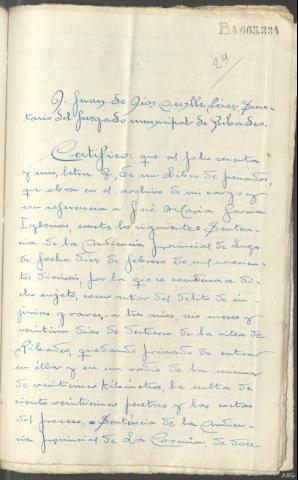 B4.665.334
24
D. Juan de Dios Pérez, Secre-
tario del Juzgado municipal de Ribadeo.
Certifico: que al folio sesenta
y uno, letra G, de un libro de penados,
que obra en el archivo de mi cargo y
con referencia a José Maria Garcia
Iglesias, existe lo siguiente: = Senten-
cia de la Audiencia provincial de Lugo
de fecha diez de febrero de mil novecien-
tos dieciseis, por la que se condena a di-
cho sujeto, como autor del delito de in-
jurias graves, a tres años, seis meses y
veintiun dias de destierro de la villa de
Ribadeo, quedando privado de entrar
en ella y en un radio de la misma
de veinticinco kilómetros, la multa de
ciento veinticinco pesetas y las costas
del proceso. = Sentencia de la Audien-
cia provincial de La Coruña, de doce
ARG